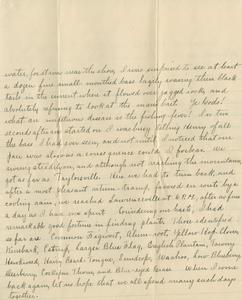 water, for down near the shore, I was surprised to see at least
a dozen fine small-mouthed bass lazily waving their black
tails in the current where it flowed over jagged rocks and
absolutely refusing to look at the ... bait. Ye Gods!
what an ... disease is the fishing fever! In two
seconds after we started on I was busy telling Henry of all
the bass I had ever seen, and not until I noticed that our
pace was slow as a consequence could I forbear. We
swung steadily on, and although not reaching the mountains,
got as far as Taylorsville. Here we had to turn back, and
after a most pleasant return-tramp, favored en route by a
cooling rain, we reached Lawrenceville at 6 P.M., after as fine
a day as I have ever spent. Considering our haste, I had
remarkable good fortune in finding plants. Those identified
so far are Common Fragwort, Alum-root, Yellow Hop Clover,
Rhubarb, Catnip, Larger Blue Flag, English Plantain, Tawny
Hawkweed, Hairy Beard-Tongue, Sundrops, ..., Low Blueberry,
Deerberry, Common Thorn and Blue-eyed Grass. When I come
back again, let us hope that we will spend all many such days
together.